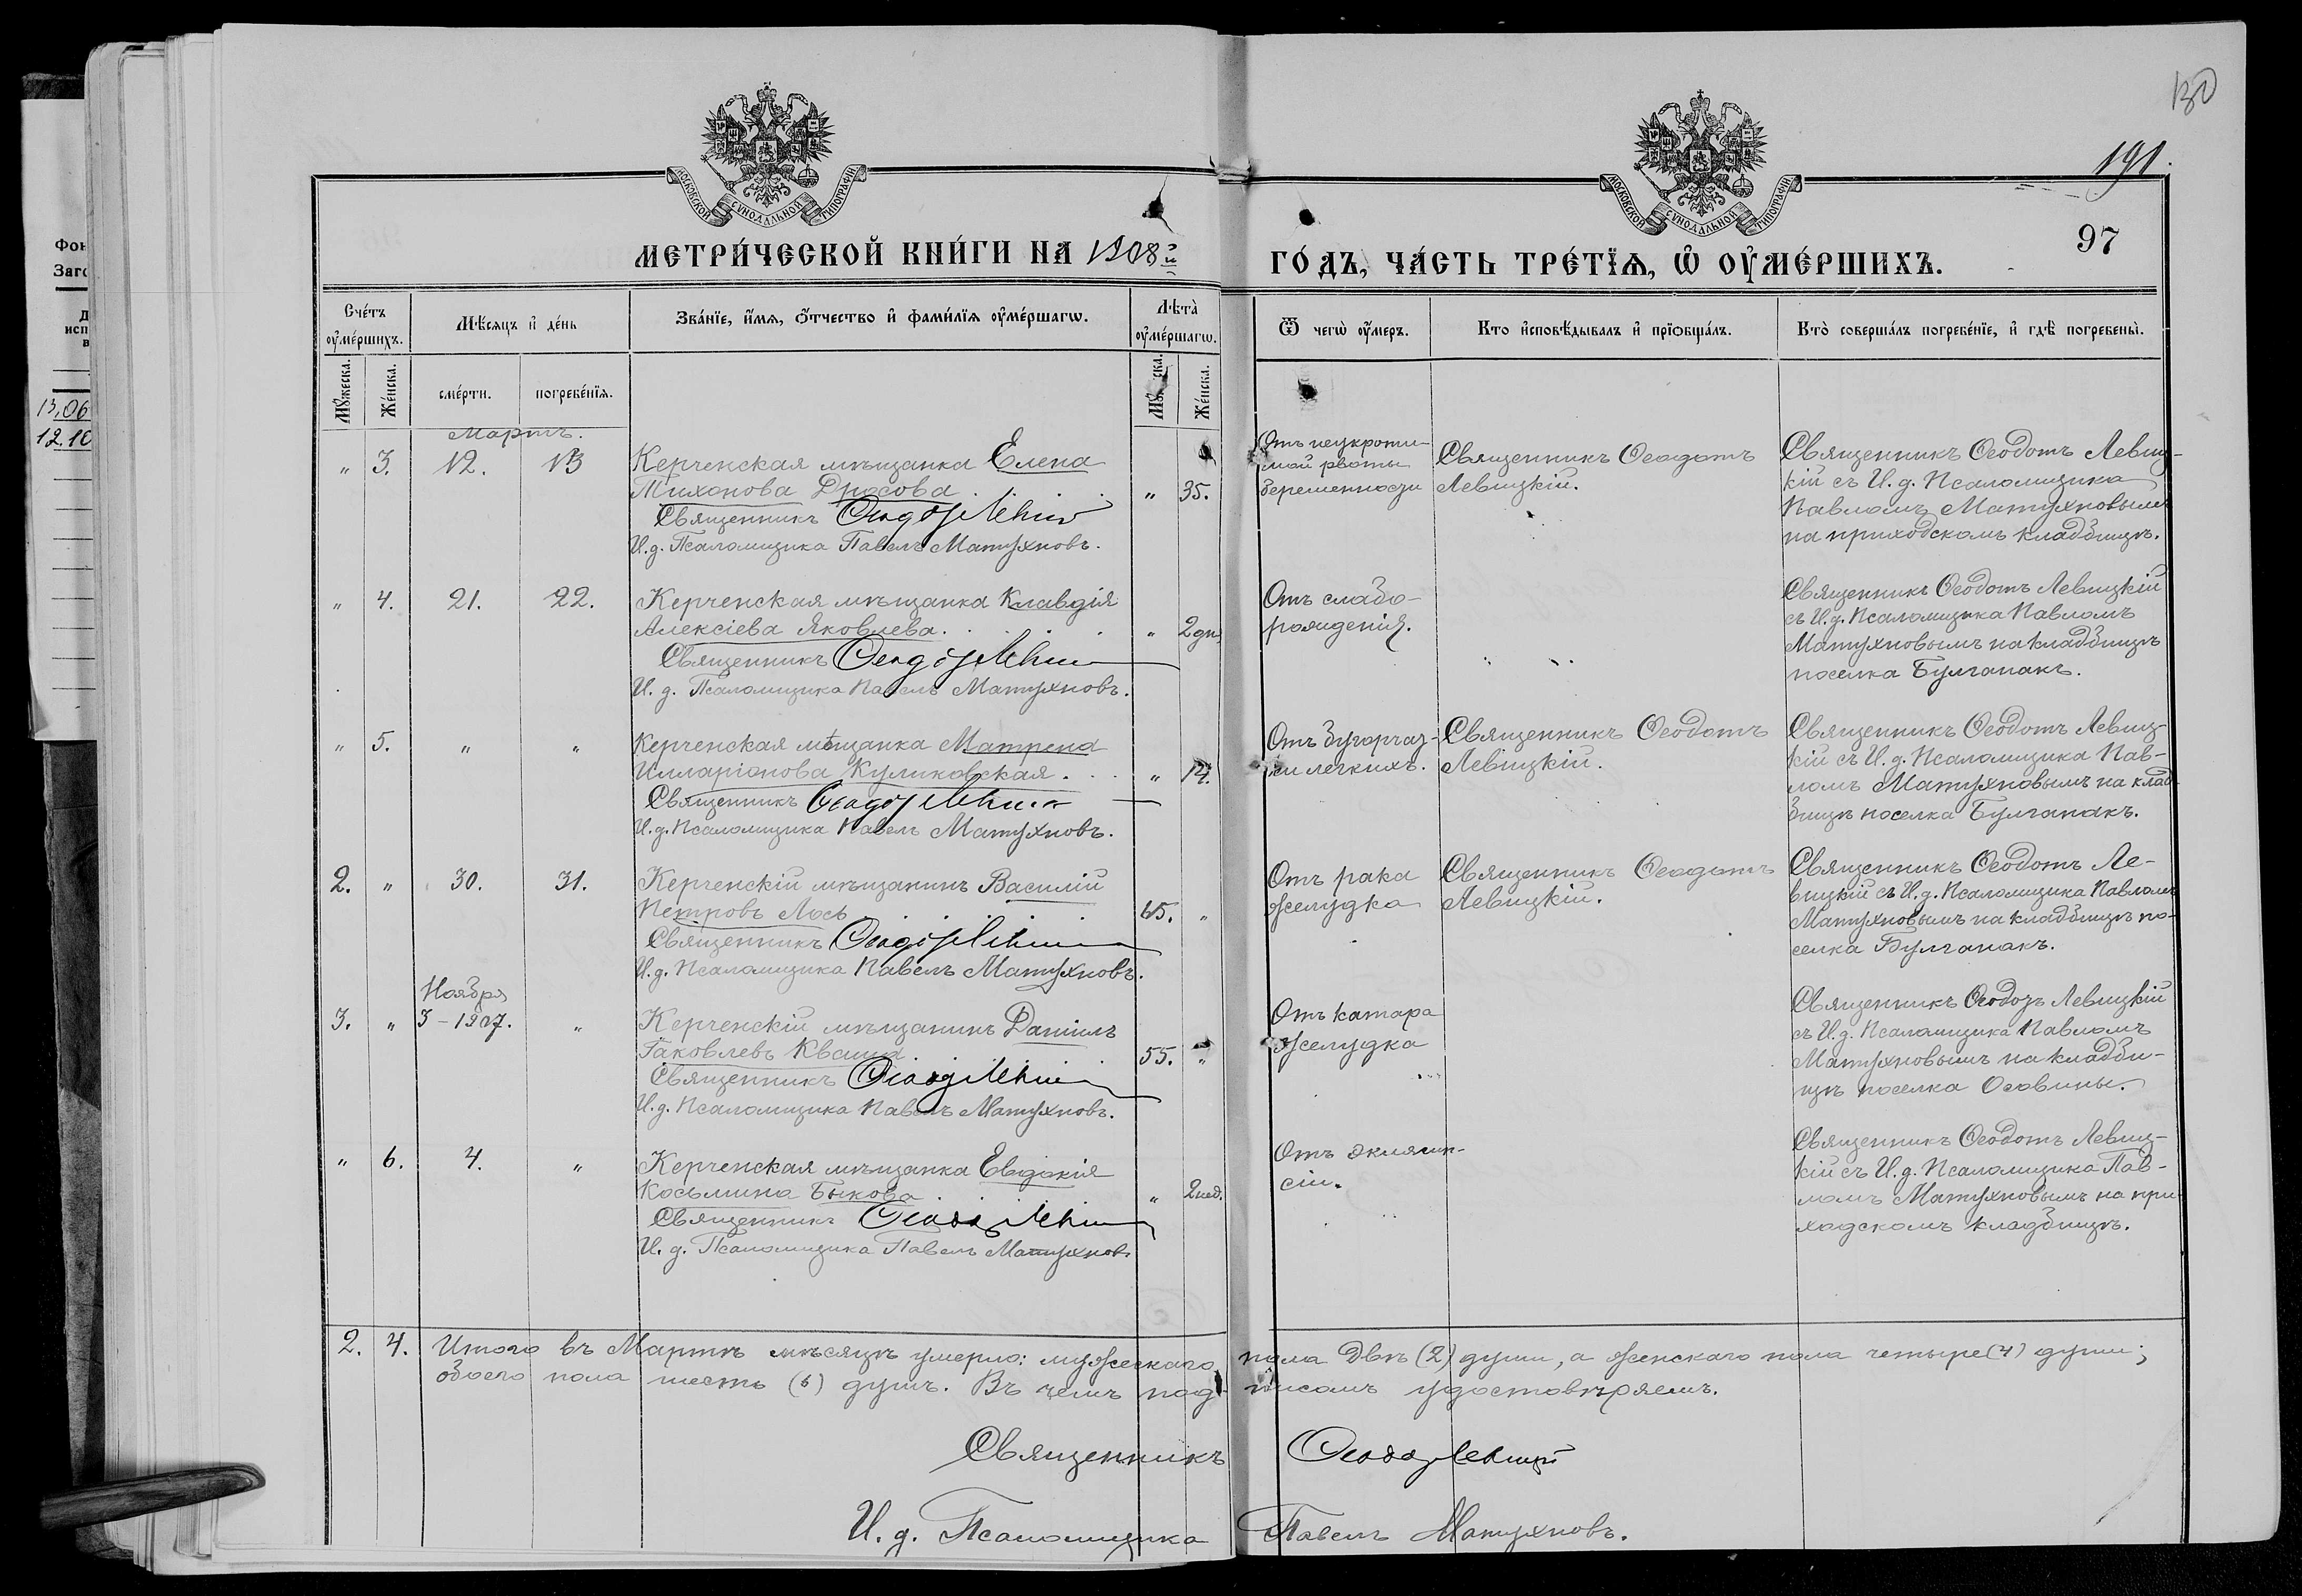 130
191.
97
МОСКОВСКОЙ СѴНОДАЛЬНОЙ ТИПОГРАФІИ
МОСКОВСКОЙ СѴНОДАЛЬНОЙ ТИПОГРАФІИ
МЕТРИ́ЧЕСКОЙ КНИ́ГИ НА 1908й
ГО́ДЪ, ЧА́СТЬ ТРЕ́ТЇѦ, Ѿ ОУ҆МЕ́РШИХЪ.
Сче́тъ оу҆ме́ршихъ.
Мѣ́сяцъ и҆ де́нь
Зва́нїе, и҆́мѧ, ѻ҆́тчество и҆ фами́лїѧ оу҆ме́ршагѡ.
Лѣ́та оу҆ме́ршагѡ.
Ѿ чегѡ̀ оу҆́меръ.
Кто̀ и҆сповѣ́дывалъ и҆ прїѻбща́лъ.
Кто̀ соверша́лъ погребе́нїе, и҆ гдѣ̀ погребены̀.
Му́жеска.
Же́нска.
сме́рти.
погребе́нїѧ.
Же́нска.
Фон
Заго
13.06
12.10
Мартъ.
" 3. 12. 13
Керченская мѣщанка Елена
Тихонова Дросова " 35.
Священникъ Ѳеодотъ Левиц
И.д. Псаломщика Павелъ Матухновъ.
Отъ неукроти-
мой рвоты
беременности
Священникъ Ѳеодотъ
Левицкій.
Священникъ Ѳеодотъ Левиц-
кій съ И.д. Псаломщика
Павломъ Матухновымъ
на приходскомъ кладбищѣ.
" 4. 21. 22.
Керченская мѣщанка Клавдія
Алексіева Яковлева. " 2 дня
Священникъ Ѳеодотъ Левиц
И. д. Псаломщика Павелъ Матухновъ.
Отъ слабо-
рожденія.
Священникъ Ѳеодотъ Левицкій
съ И.д. Псаломщика Павломъ
Матухновымъ на кладбищѣ
поселка Булганакъ.
" 5. " "
Керченская мѣщанка Матрена
Илларіонова Куликовская. " 14.
Священникъ Ѳеодотъ Левиц
И.д. Псаломщика Павелъ Матухновъ.
Отъ бугорчат-
ки легкихъ.
Священникъ Ѳеодотъ
Левицкій.
Священникъ Ѳеодотъ Левиц-
кій съ И.д. Псаломщика Пав-
ломъ Матухновымъ на клад-
бищѣ поселка Булганакъ.
2. " 30. 31.
Керченскій мѣщанинъ Василій
Петровъ Лось 65. "
Священникъ Ѳеодотъ Левиц
И.д. Псаломщика Павелъ Матухновъ.
Отъ рака
желудка
Священникъ Ѳеодотъ
Левицкій.
Священникъ Ѳеодотъ Ле-
вицкій съ И.д. Псаломщика Павломъ
Матухновымъ на кладбищѣ по-
селка Булганакъ.
Ноября
3. " 3-1907. "
Керченскій мѣщанинъ Даніилъ
Іаковлевъ Кваша 55. "
Священникъ Ѳеодотъ Левиц
И.д. Псаломщика Павелъ Матухновъ.
Отъ катара
желудка
Священникъ Ѳеодотъ Левицкій
съ И.д. Псаломщика Павломъ
Матухновымъ на кладби-
щѣ поселка Осовины.
" 6. 4. "
Керченская мѣщанка Евдокія
Косьмина Быкова " 2 нед.
Священникъ Ѳеодотъ Левиц
И. д. Псаломщика Павелъ Матухновъ
Отъ эклямп-
сіи.
Священникъ Ѳеодотъ Левиц-
кій съ И.д. Псаломщика Пав-
ломъ Матухновымъ на при-
ходскомъ кладбищѣ.
2. 4. Итого въ Мартѣ мѣсяцѣ умерло: мужескаго пола двѣ (2) души, а женскаго пола четыре (4) души;
обоего пола шесть (6) душъ. Въ чемъ под- писомъ удостовѣряемъ.
Священникъ Ѳеодотъ Левицкій
И. д. Псаломщика Павелъ Матухновъ.